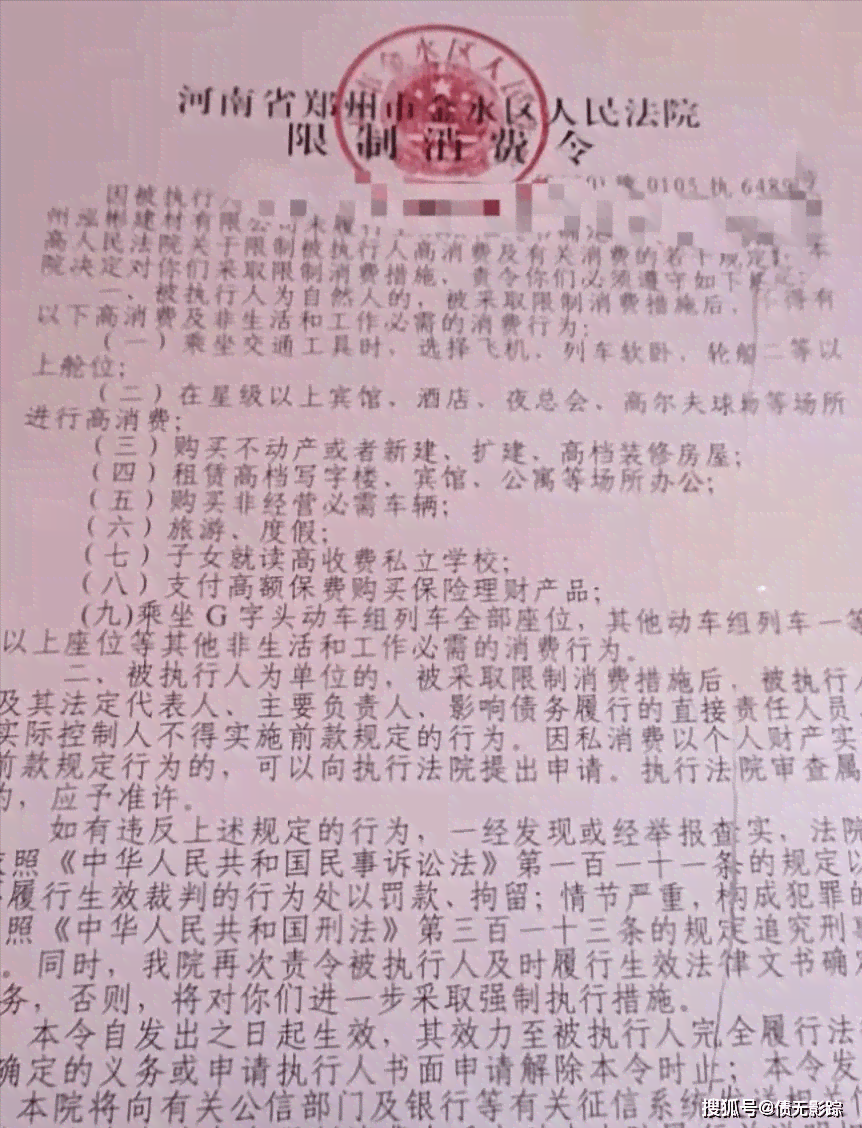 河南省郑州市金水区人民法院
限制消费令
0105执6489号
因被执行人
州泓彬建材有限公司未履行
高人民法院关于限制被执行人高消费及有关消费的若干规定》，本
院决定对你们采取限制消费措施，责令你们必须遵守如下规定：
一、被执行人为自然人的，被采取限制消费措施后，不得有
以下高消费及非生活和工作必需的消费行为：
（一）乘坐交通工具时，选择飞机、列车软卧、轮船二等以
上舱位；
（二）在星级以上宾馆、酒店、夜总会、高尔夫球场等场所
进行高消费；
（三）购买不动产或者新建、扩建、高档装修房屋；
（四）租赁高档写字楼、宾馆、公寓等场所办公；
（五）购买非经营必需车辆；
（六）旅游、度假；
（七）子女就读高收费私立学校；
（八）支付高额保费购买保险理财产品；
(九)乘坐G字头动车组列车全部座位，其他动车组列车一等
以上座位等其他非生活和工作必需的消费行为。
二、被执行人为单位的，被采取限制消费措施后，被执行人
及其法定代表人、主要负责人、影响债务履行的直接责任人员
实际控制人不得实施前款规定的行为。因私消费以个人财产实
前款规定行为的，可以向执行法院提出申请。执行法院审查属
的，应予准许。
如有违反上述规定的行为，一经发现或经举报查实，法院
依照《中华人民共和国民事诉讼法》第一百一十一条的规定以
履行生效裁判的行为处以罚款、拘留；情节严重，构成犯罪的
照《中华人民共和国刑法》第三百一十三条的规定追究刑事
。同时，我院再次责令被执行人及时履行生效法律文书确定
务，否则，将对你们进一步采取强制执行措施。
本令自发出之日起生效，其效力至被执行人完全履行法
确定的义务或申请执行人书面申请解除本令时止；本令发
本院将向有关公信部门及银行等有关征信系统发送相关信
搜狐号@债无影踪